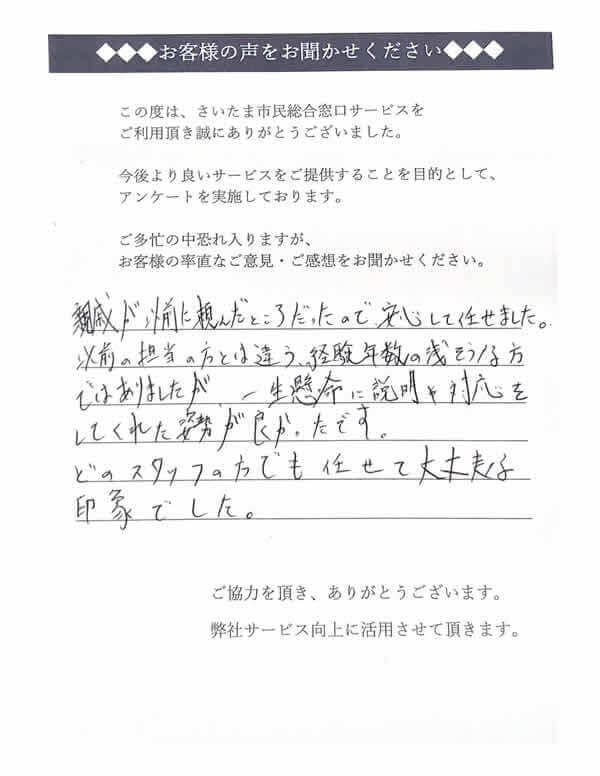 ◆◆◆お客様の声をお聞かせください◆◆◆
この度は、さいたま市民総合窓口サービスを
ご利用頂き誠にありがとうございました。
今後より良いサービスをご提供することを目的として、
アンケートを実施しております。
ご多忙の中恐れ入りますが、
お客様の率直なご意見・ご感想をお聞かせください。
親戚が以前に頼んだところだったので、安心して任せました。
以前の担当の方とは違う、経験年数の浅そうな方
ではありましたが、一生懸命に説明や対応を
してくれた姿勢が良かったです。
どのスタッフの方でも任せて大丈夫な
印象でした。
ご協力を頂き、ありがとうございます。
弊社サービス向上に活用させて頂きます。